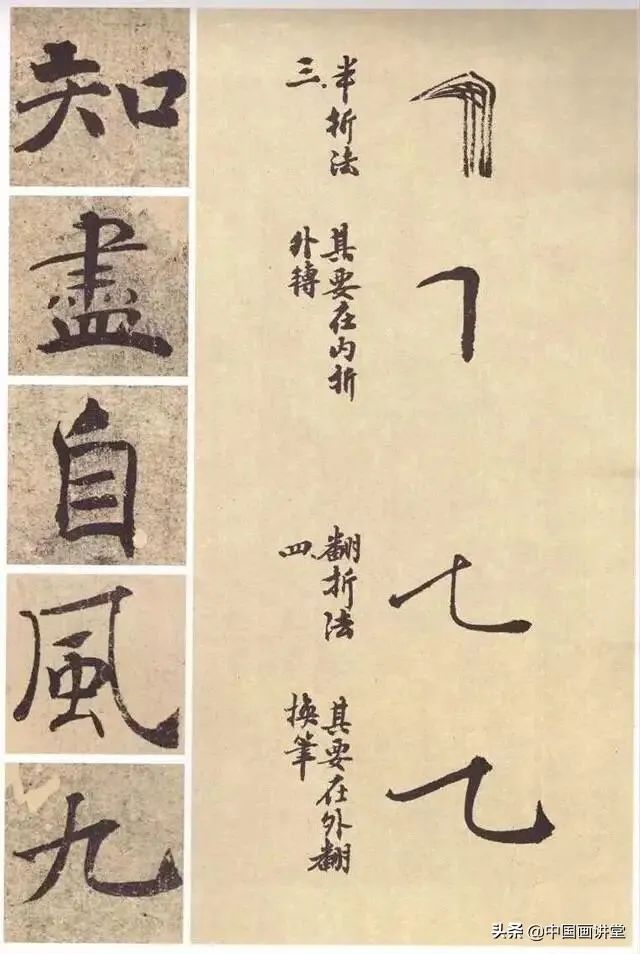 知
盡
自
風
九
三、半折法
其要在内折
外轉
四、翻折法
其要在外翻
換筆
头条 @中国画讲堂